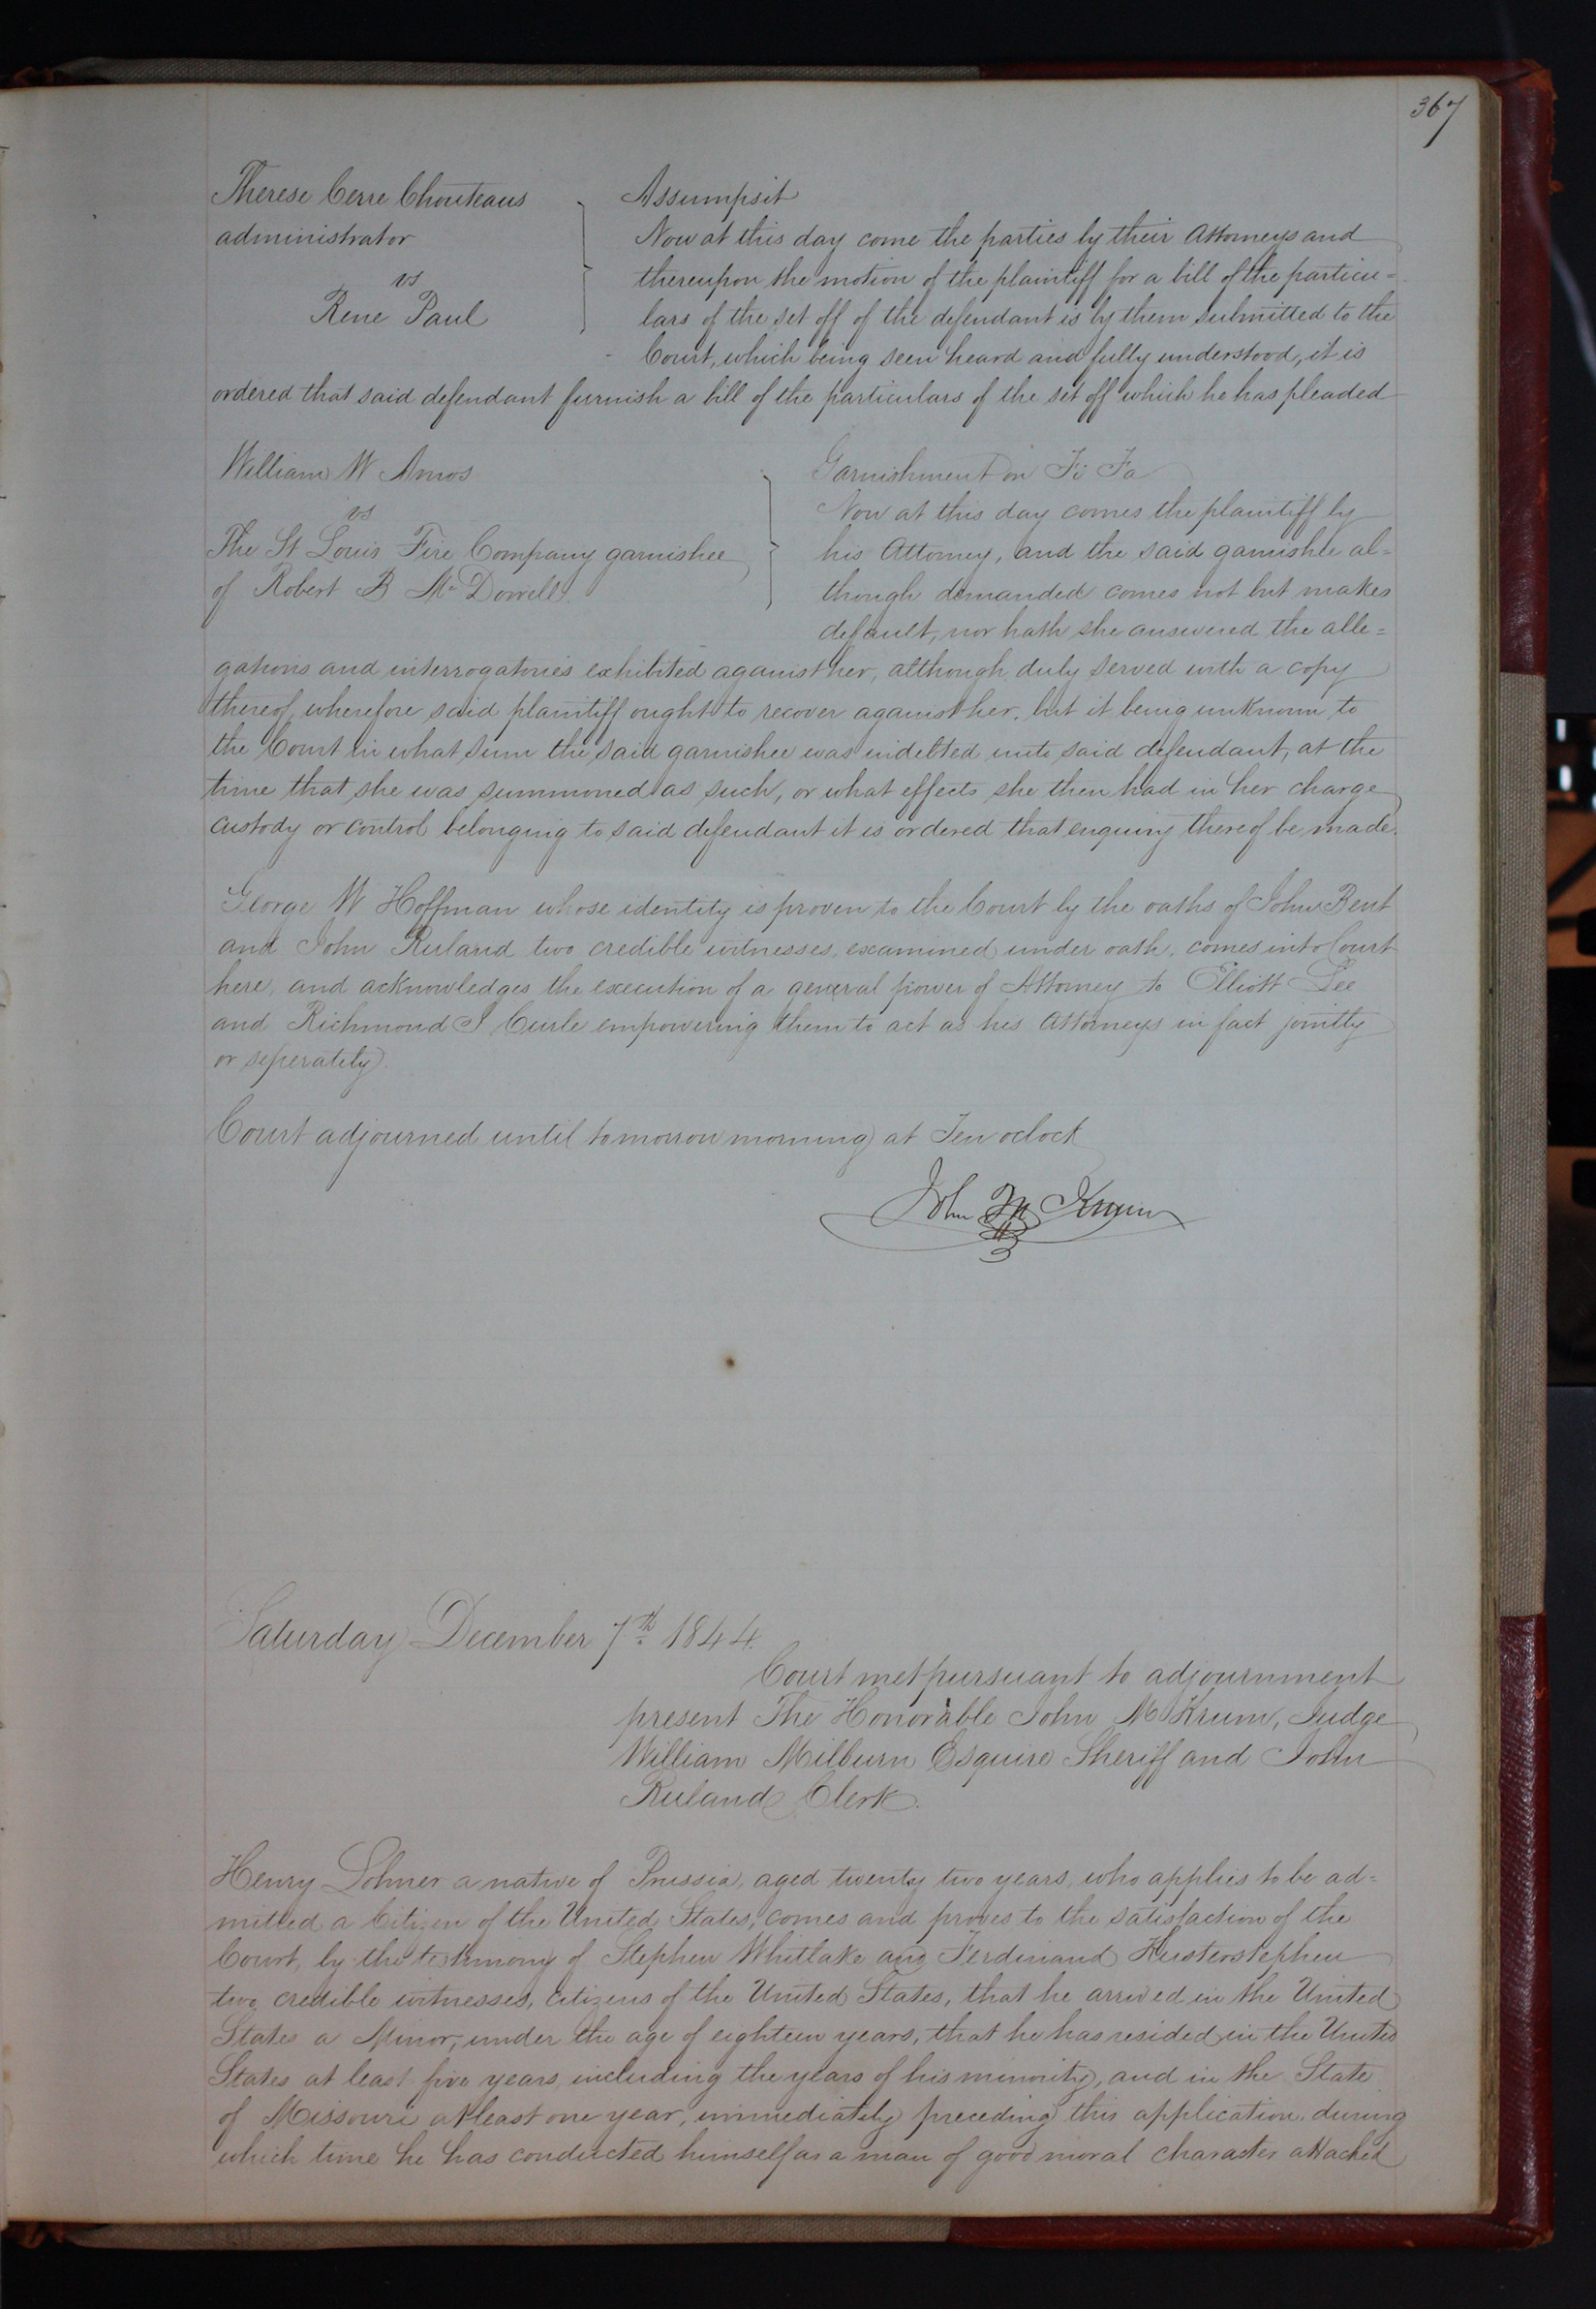 367
Therese Cerre Chouteaus
administrator
vs
Rene Paul
Assumpsit
Now at this day come the parties by their Attorneys and
thereupon the motion of the plaintiff for a bill of the particu=
lars of the set off of the defendant is by them submitted to the
Court, which being seen heard and fully understood, it is
ordered that said defendant furnish a bill of the particulars of the set off which he has pleaded
William W Amos
vs
The St Louis Fire Company garnishee
of Robert B McDowell.
Garnishment on Fi Fa
Now at this day comes the plaintiff by
his Attorney, and the said garnishee al=
though demanded comes not but makes
default, nor hath she answered the alle=
gations and interrogatories exhibited against her, although duly served with a copy
thereof, wherefore said plaintiff ought to recover against her, but it being unknown to
the Court in what sum the said garnishee was indebted unto said defendant, at the
time that she was summoned as such, or what effects she then had in her charge
custody or control belonging to said defendant it is ordered that enquiry thereof be made.
George W Hoffman whose identity is proven to the Court by the oaths of John Bent
and John Ruland two credible witnesses, examined under oath, comes into Court
here, and acknowledges the execution of a general power of Attorney to Elliott Lee
and Richmond J Curle empowering them to act as his Attorneys in fact jointly
or seperately.
Court adjourned until tomorrow morning at Ten oclock
John M Krum
Saturday December 7th 1844.
Court met pursuant to adjournment
present The Honorable John M Krum, Judge
William Milburn Esquire Sheriff and John
Ruland Clerk.
Henry Lohmer a native of Prussia, aged twenty two years, who applies to be ad=
mitted a Citizen of the United States, comes and proves to the satisfaction of the
Court, by the testimony of Stephen Whitlake and Ferdinand
two credible witnesses, citizens of the United States, that he arrived in the United
States a Minor, under the age of eighteen years, that he has resided in the United
States at least five years, including the years of his minority, and in the State
of Missouri at least one year, immediately preceding this application, during
which time he has conducted himself as a man of good moral character attached